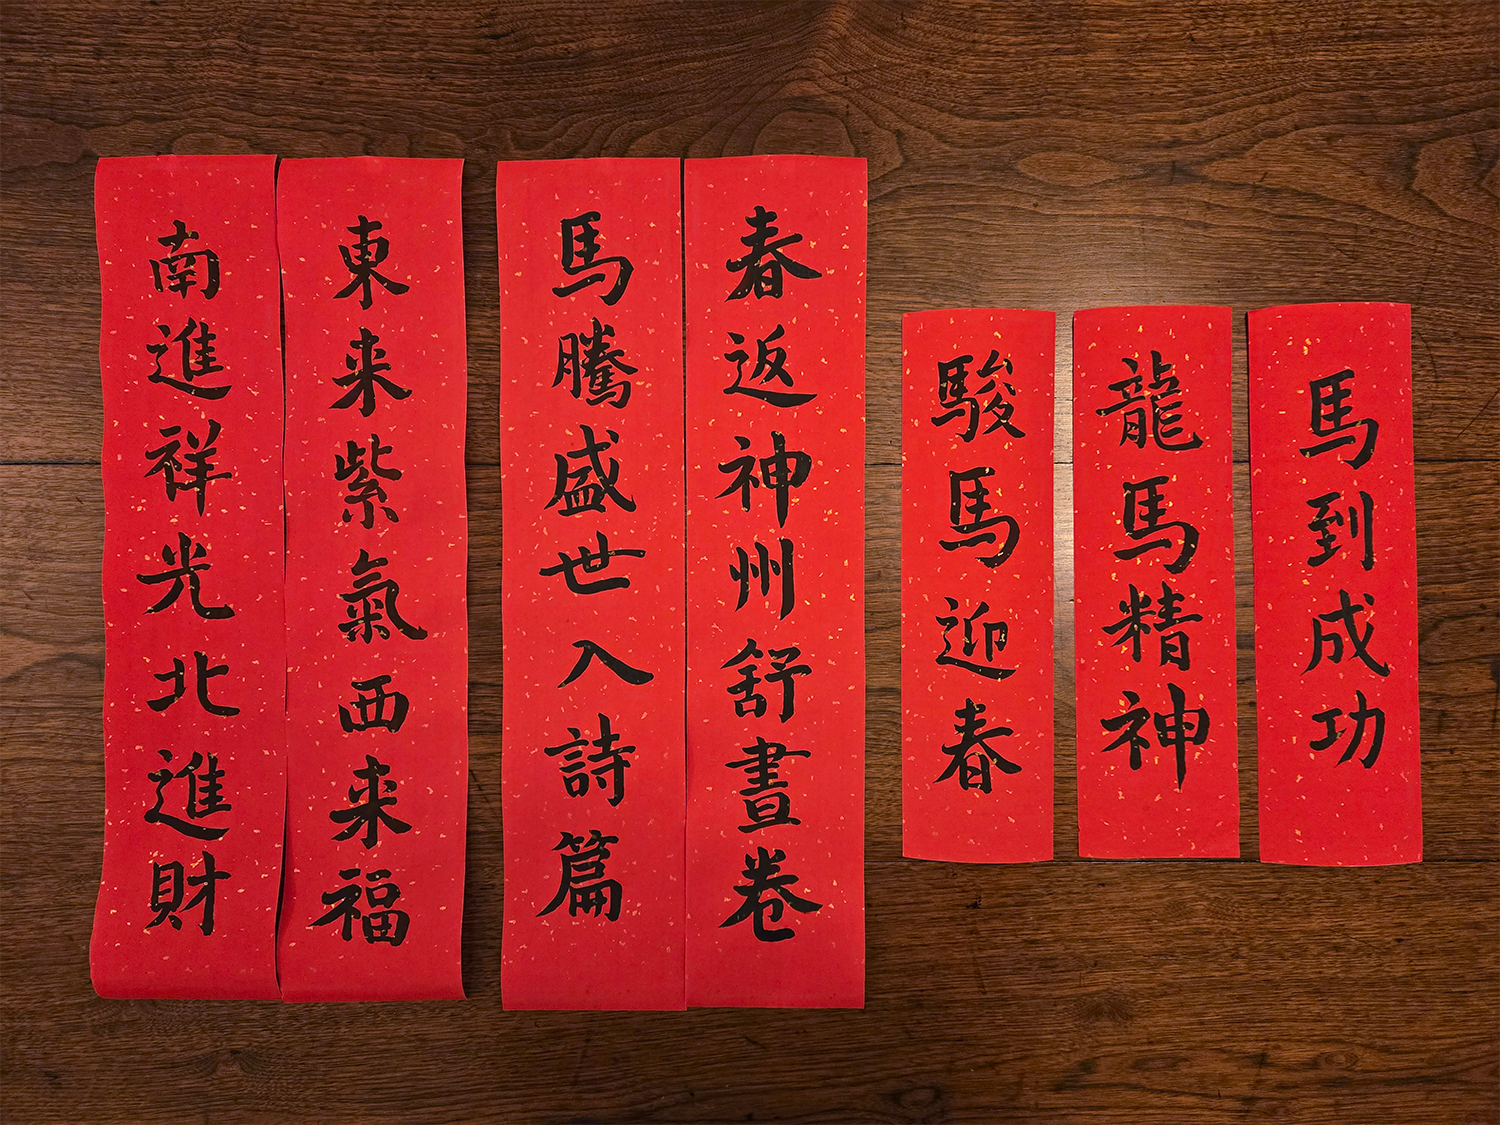 馬到成功
龍馬精神
駿馬迎春
春返神州舒晝卷
馬騰盛世入詩篇
東来紫氣西来福
南進祥光北進財